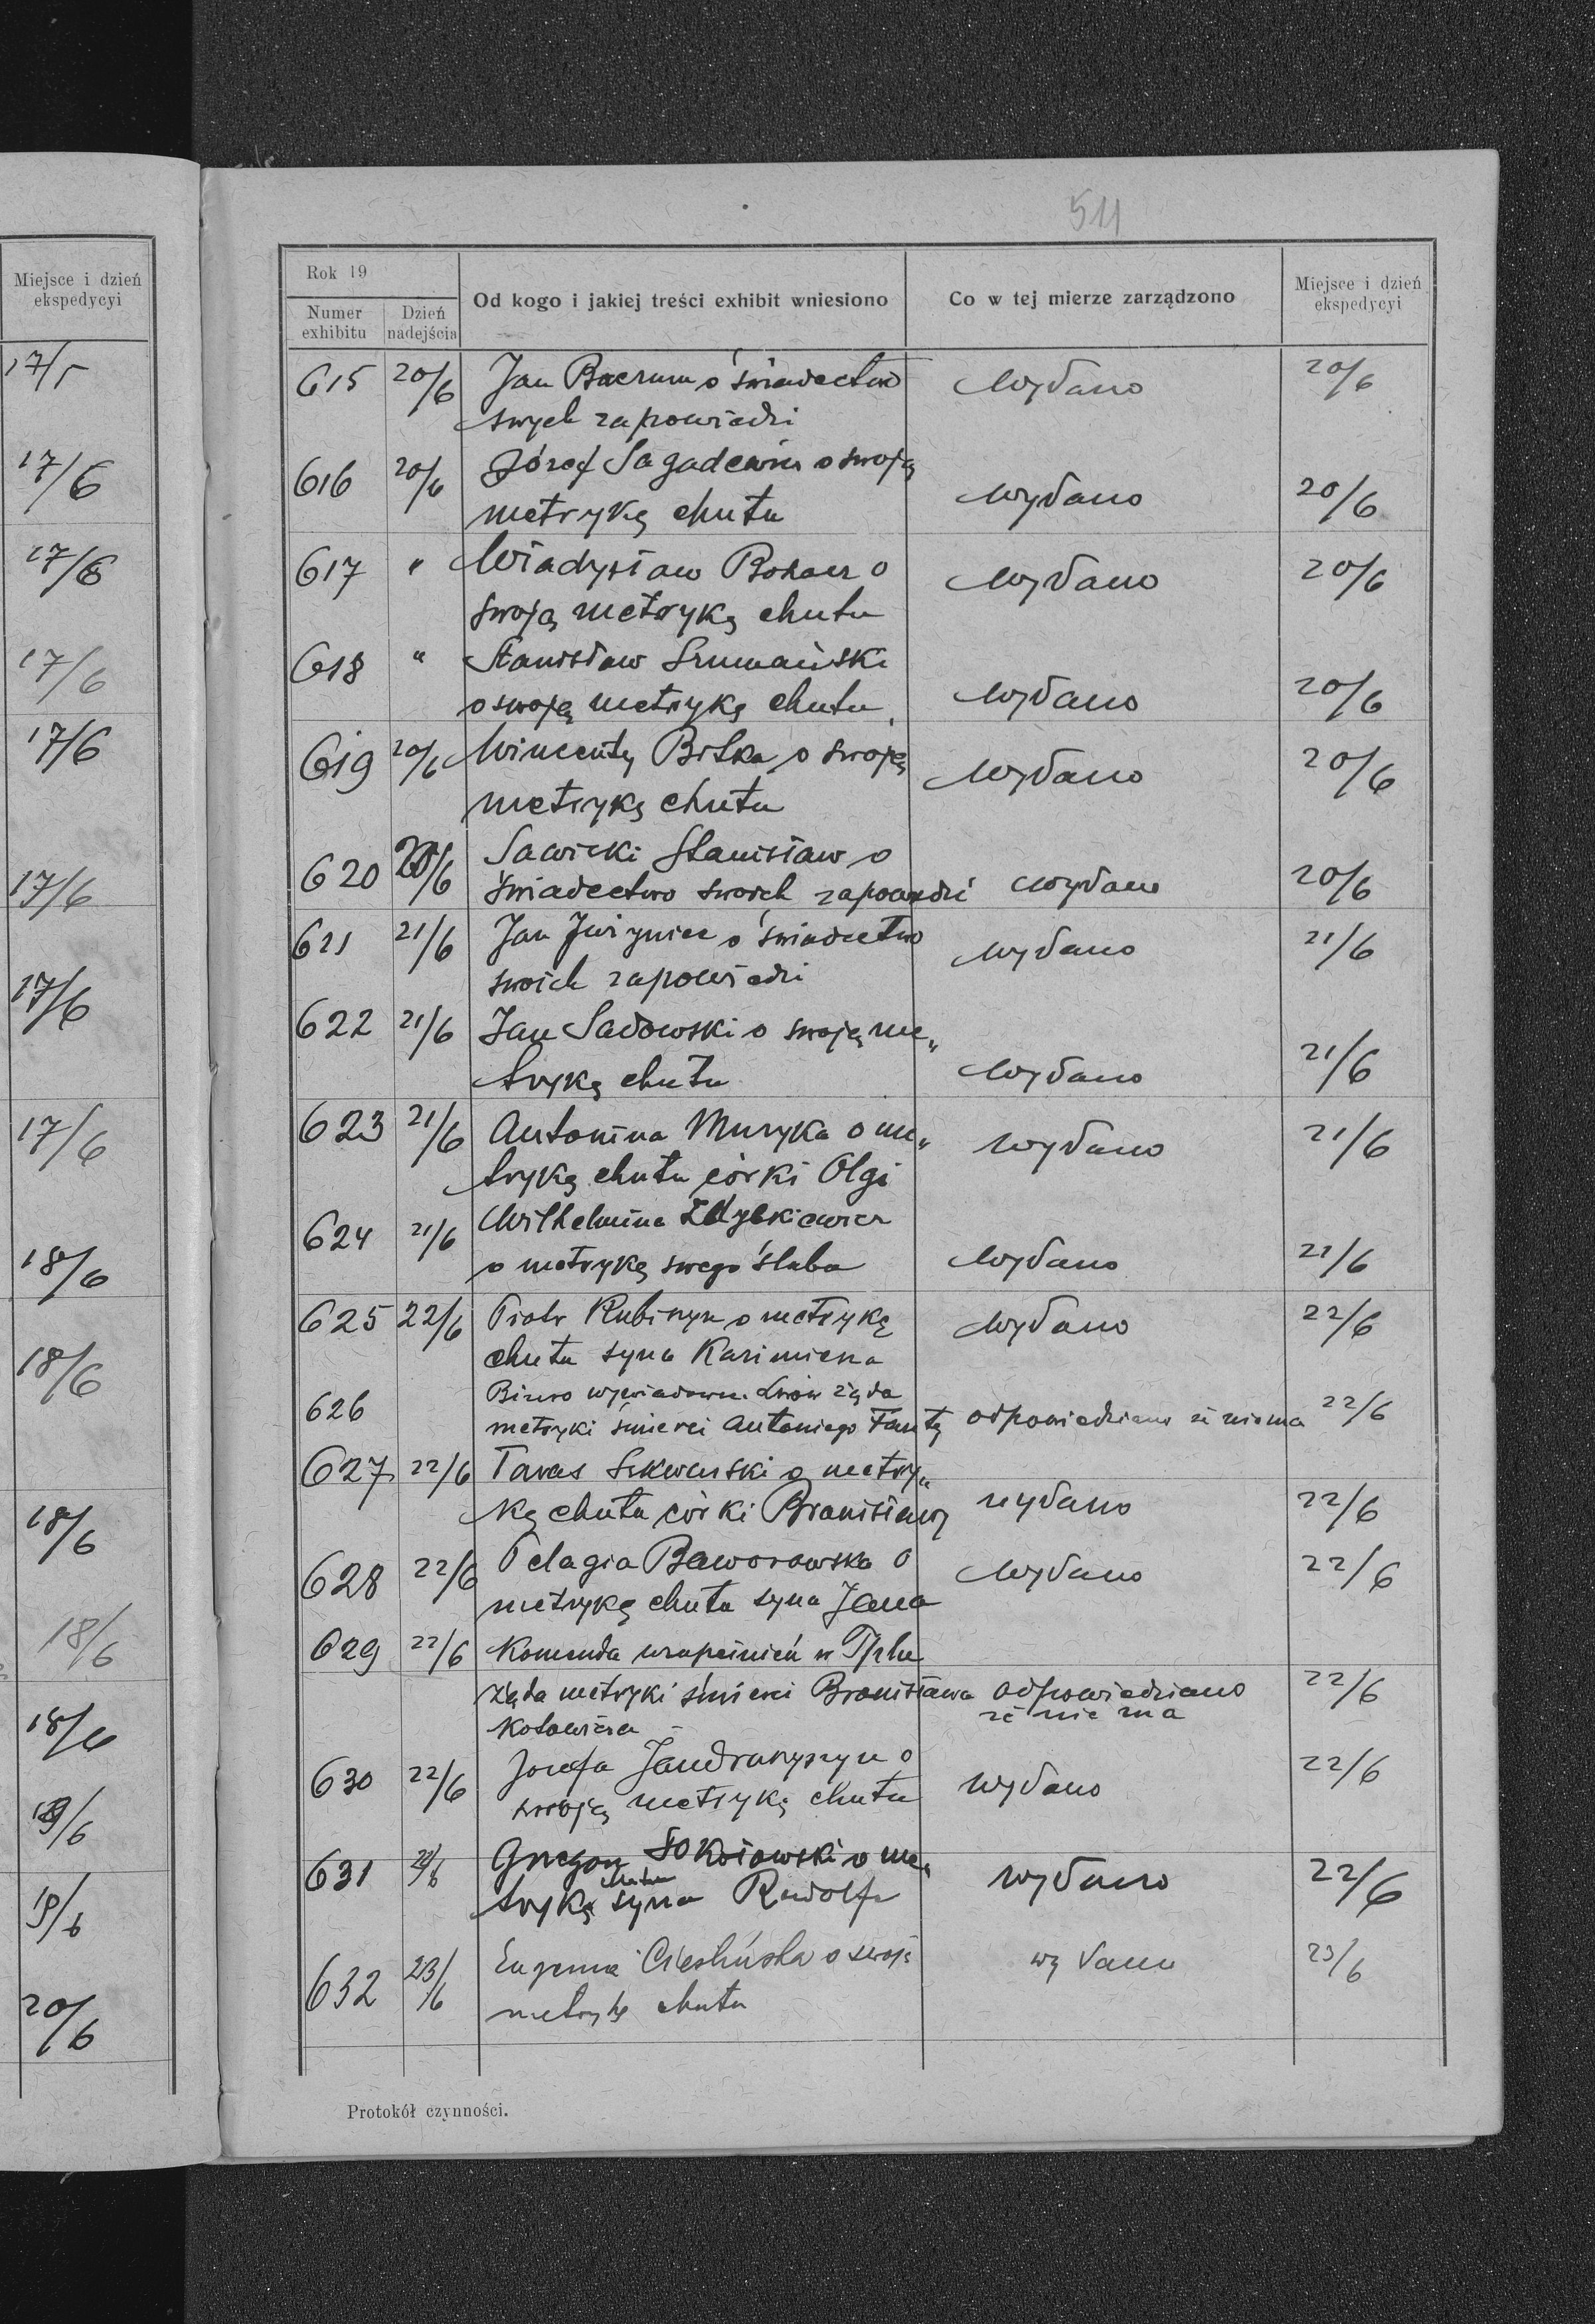 Miejsce i dzień
ekspedycyi
17/5
17/6
17/6
17/6
17/6
17/6
17/6
17/6
18/6
18/6
18/6
18/6
18/6
19/6
19/6
20/6
511
Rok 19
Numer exhibitu
Dzień nadejścia
Od kogo i jakiej treści exhibit wniesiono
Co w tej mierze zarządzono
Miejsce i dzień ekspedycyi
615 20/6 Jan o świadectwo wydano 20/6
swych zapowiedzi
616 20/6 Józef o swoją
metrykę chrztu wydano 20/6
617 " Władysław o wydano 20/6
swoją metrykę chrztu
618 " Stanisław Szumański
o swoją metrykę chrztu wydano 20/6
619 20/6 Wincenty Bitka o swoją wydano 20/6
metrykę chrztu
620 20/6 Sawicki Stanisław o
świadectwo swoich zapowiedzi wydano 20/6
621 21/6 Jan o świadectwo wydano 21/6
swoich zapowiedzi
622 21/6 Jan Sadowski o swoją me„
trykę chrztu wydano 21/6
623 21/6 Antonina Muzyka o me„ wydano 21/6
trykę chrztu córki Olgi
624 21/6 Wilhelmina
o metrykę swego ślubu wydano 21/6
625 22/6 Piotr o metrykę wydano 22/6
chrztu syna Kazimierza
626 Biuro Lwów żąda
metryki śmierci Antoniego odpowiedziano że niema 22/6
627 22/6 Taras o metry„
kę chrztu córki Bronisławy wydano 22/6
628 22/6 Pelagia Baworowska o wydano 22/6
metrykę chrztu syna Jana
629 22/6 Komenda uzupełnień w
żąda metryki śmierci Bronisława odpowiedziano 22/6
że nie ma
630 22/6 Józefa o wydano 22/6
swoją metrykę chrztu
631 Sokołowski o me„ wydano 22/6
chrztu
trykę syna Rudolfa
632 23/6 Eugenia o swoją wydano 23/6
metrykę chrztu
Protokół czynności.